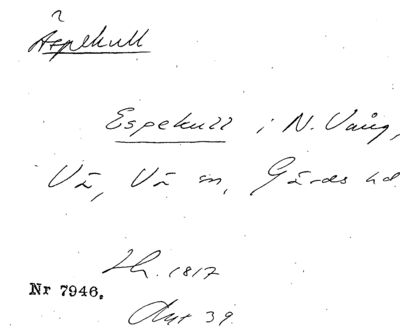 ?
Äspekull
Espekull i N. Vång,
Vä, Vä sn, Gärds hd
Lh. 1817
Nr 7946.
Akt 39